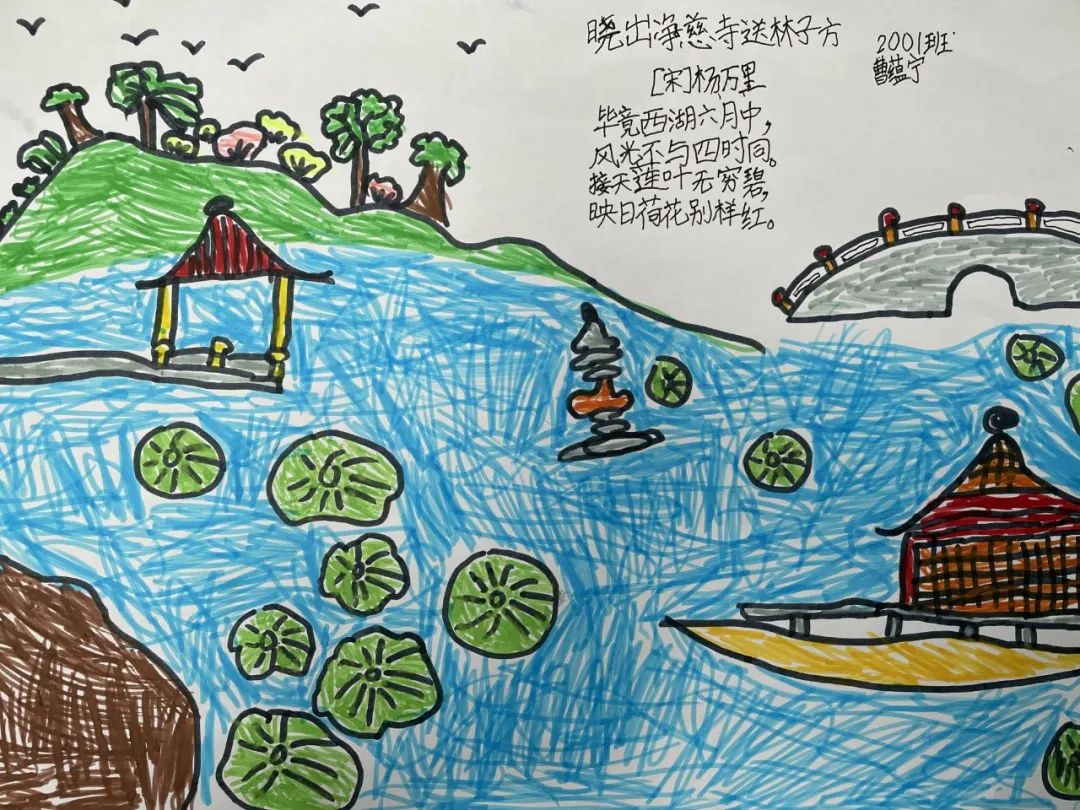 晓出净慈寺送林子方
2001班
曹蕴宁
[宋]杨万里
毕竟西湖六月中，
风光不与四时同。
接天莲叶无穷碧，
映日荷花别样红。